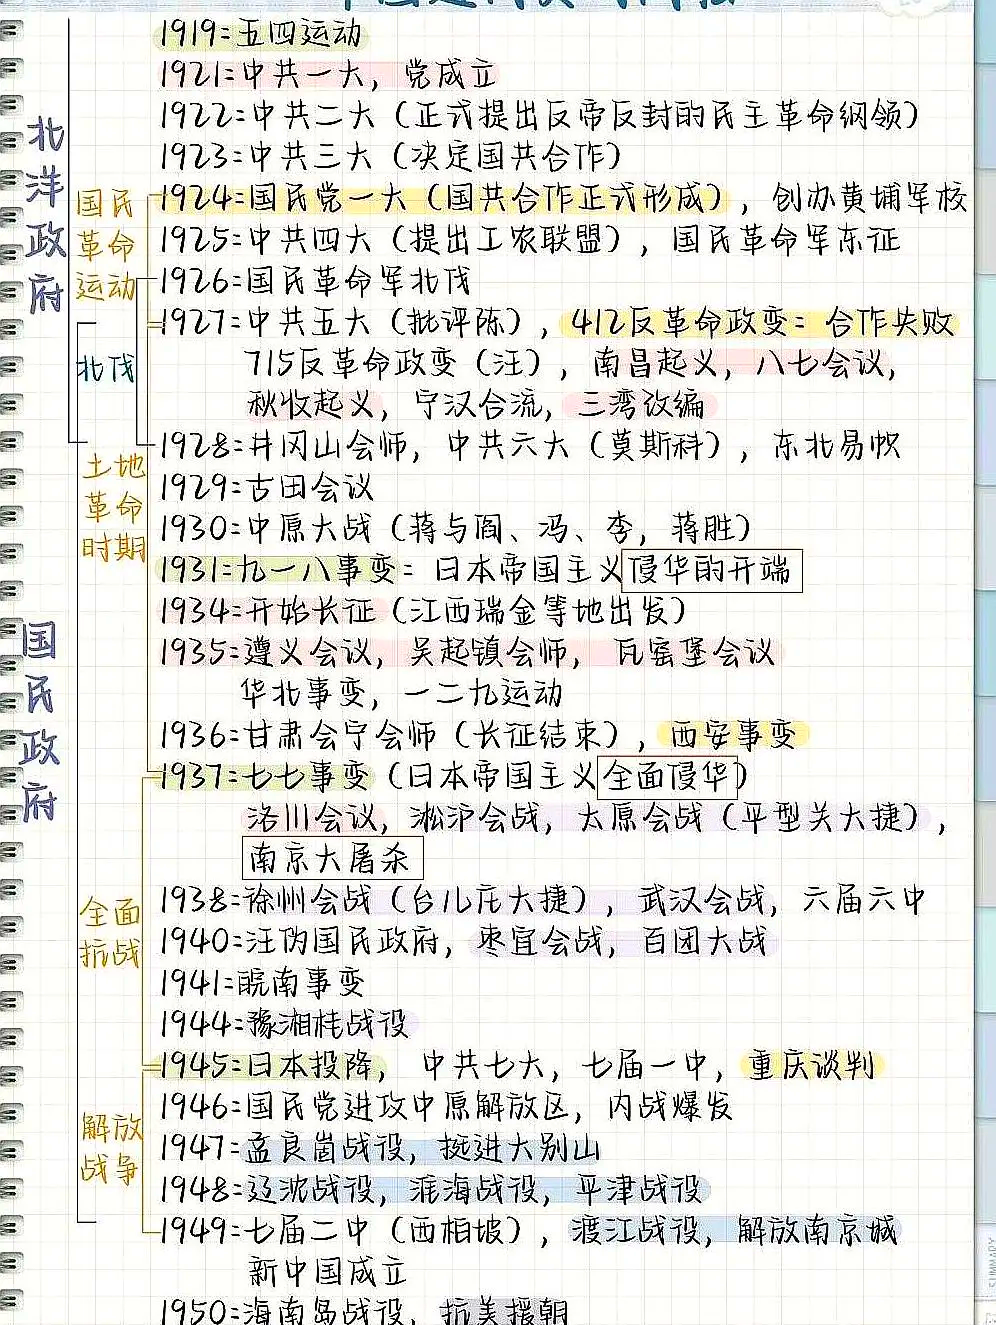 1919:五四运动
1921:中共一大，党成立
1922:中共二大（正式提出反帝反封的民主革命纲领）
1923:中共三大（决定国共合作）
1924:国民党一大（国共合作正式形成），创办黄埔军校
1925:中共四大（提出工农联盟），国民革命军东征
1926:国民革命军北伐
1927:中共五大（批评陈），412反革命政变：合作失败
715反革命政变（汪），南昌起义，八七会议，
秋收起义，宁汉合流，三湾改编
1928:井冈山会师，中共六大（莫斯科），东北易帜
1929:古田会议
1930:中原大战（蒋与阎、冯、李，蒋胜）
1931:九一八事变：日本帝国主义侵华的开端
1934:开始长征（江西瑞金等地出发）
1935:遵义会议，吴起镇会师，瓦窑堡会议
华北事变，一二九运动
1936:甘肃会宁会师（长征结束），西安事变
1937:七七事变（日本帝国主义全面侵华）
洛川会议，淞沪会战，太原会战（平型关大捷），
南京大屠杀
1938:徐州会战（台儿庄大捷），武汉会战，六届六中
1940:汪伪国民政府，枣宜会战，百团大战
1941:皖南事变
1944:豫湘桂战役
1945:日本投降，中共七大，七届一中，重庆谈判
1946:国民党进攻中原解放区，内战爆发
1947:孟良崮战役，挺进大别山
1948:辽沈战役，淮海战役，平津战役
1949:七届二中（西柏坡），渡江战役，解放南京城
新中国成立
1950:海南岛战役，抗美援朝
北洋政府
国民政府
国民
革命
运动
北伐
土地
革命
时期
全面
抗战
解放
战争
SUMMARY